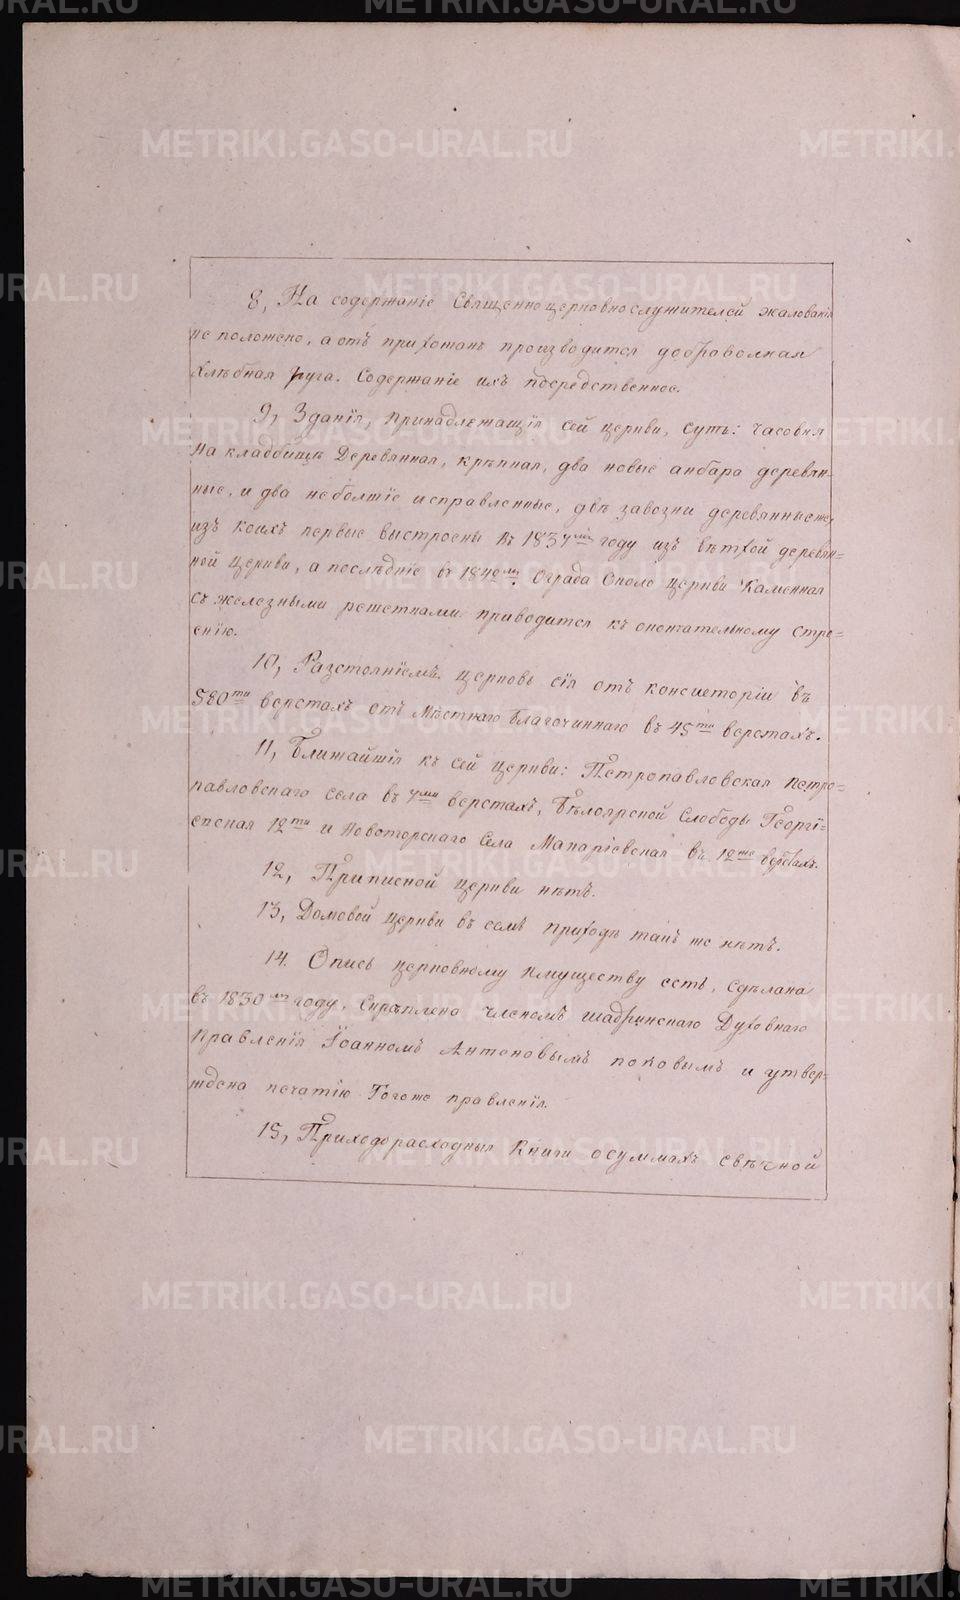 8, На содержаніе Священноцерковнослужителей жалованія
не положено, а отъ прихожанъ производится добровольная
Хлѣбная руга. Содержаніе ихъ посредственное.
9, Зданія, принадлежащія сей церкви, суть: часовня
на кладбищѣ Деревянная, крѣпкая, два новые анбара деревян=
ные, и два небольшіе исправленные, двѣ завозни деревянные же,
изъ коихъ первые выстроены въ 1837мъ году изъ вѣтхой деревян=
ной церкви, а послѣдніе въ 1842мъ. Ограда около церкви Каменная
съ железными решетками приводится къ окончательному стро=
енію.
10, Разстояніемъ церковь сія отъ консисторіи въ
580ти верстахъ отъ Мѣстнаго Благочиннаго въ 45ти верстахъ.
11, Ближайшія къ сей церкви: Петропавловская Петро=
павловскаго села въ 7ми верстахъ, Бѣлоярской Слободы Георгі=
евская 12ти и Новоторскаго Села Макаріевская въ 12ти верстахъ.
12, Приписной церкви нѣтъ.
13, Домовой церкви въ семъ приходѣ такъ же нѣтъ.
14. Опись церковному имуществу есть, сдѣлана
въ 1830мъ году, Скрѣплена членомъ шадринскаго Духовнаго
Правленія Іоанномъ Антоновымъ поповымъ и утвер=
ждена печатію Тогоже правленія.
15, Приходорасходныя Книги о суммахъ свѣчной
METRIKI.GASO-URAL.RU